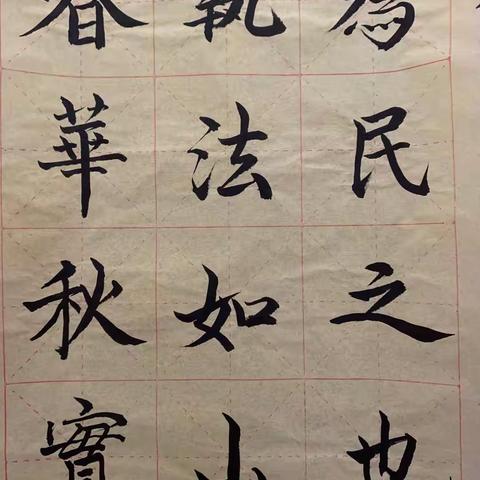 為民之也
執法如山
春華秋實